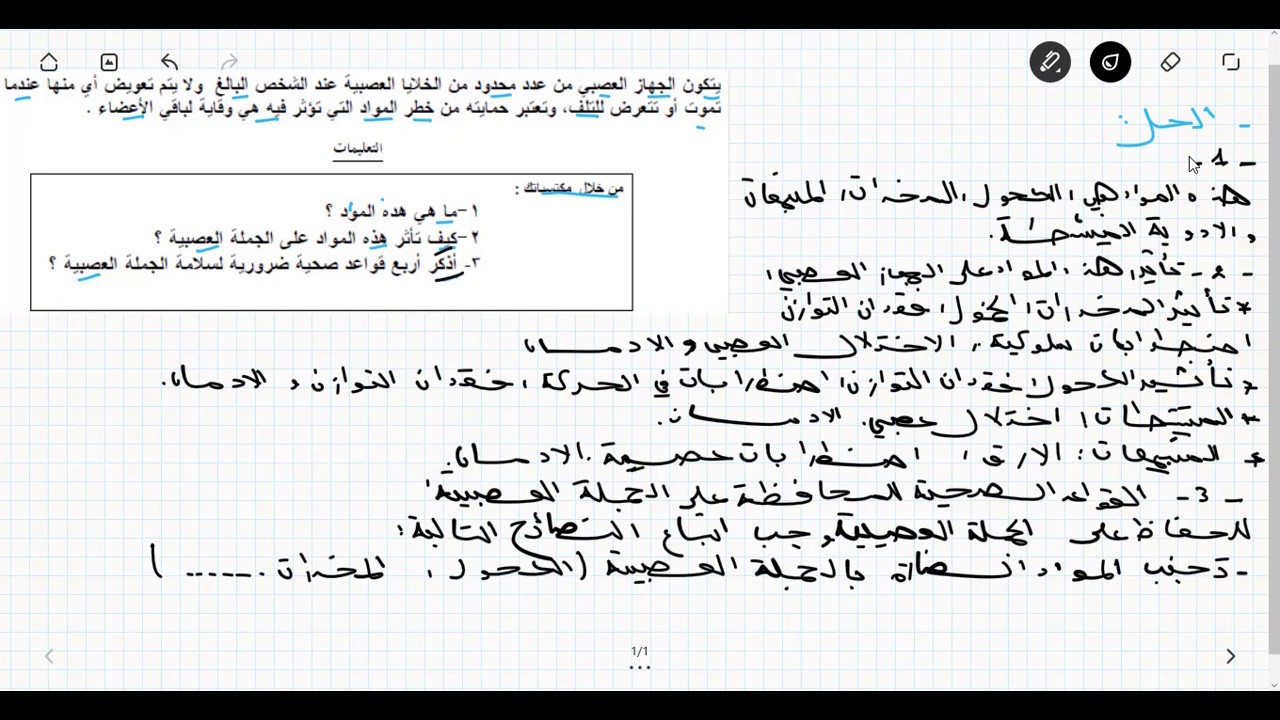 يتكون الجهاز العصبي من عدد محدود من الخلايا العصبية عند الشخص البالغ ولا يتم تعويض أي منها عندما
تموت أو تتعرض للتلف، وتعتبر حمايته من خطر المواد التي تؤثر فيه هي وقاية لباقي الأعضاء .
التعليمات
من خلال مكتسباتك :
١ –ما هي هده المواد ؟
٢ –كيف تأثر هذه المواد على الجملة العصبية ؟
٣- أذكر أربع قواعد صحية ضرورية لسلامة الجملة العصبية ؟
- الحل
- 1 -
هذه المواد هي: الكحول، المخدرات، المنبهات
والادوية المنشطة.
- 2 - تأثير هذه المواد على الجهاز العصبي:
* تأثير المخدرات: فقدان التوازن
اضطرابات سلوكية، الاختلال العصبي والادمان
* تأثير الكحول: فقدان التوازن، اضطرابات في الحركة، فقدان التوازن، الادمان.
* المنشطات: اختلال عصبي. الادمان.
* المنبهات: الارق، اضطرابات عصبية. الادمان.
- 3 - القواعد الصحية للمحافظة على الجملة العصبية:
للحفاظ على الجملة العصبية وجب اتباع النصائح التالية:
- تجنب المواد الضارة بالجملة العصبية (الكحول، المخدرات ......)
1/1